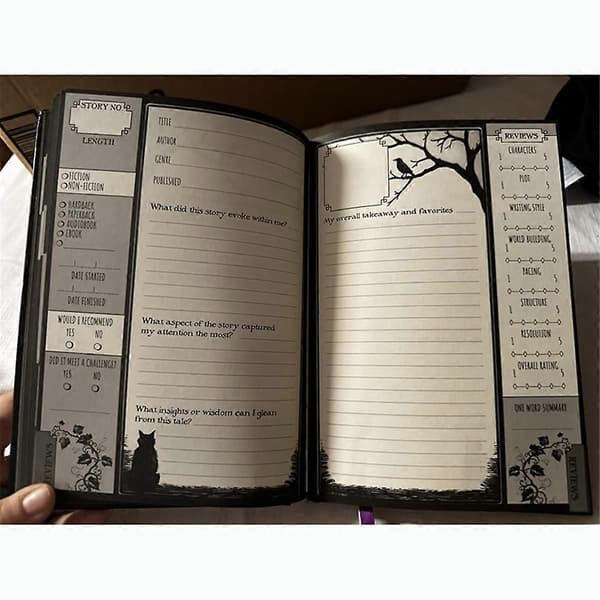 STORY NO
LENGTH
FICTION
NON-FICTION
HARDBACK
PAPERBACK
AUDIOBOOK
EBOOK
DATE STARTED
DATE FINISHED
WOULD I RECOMMEND
YES NO
DID IT MEET A CHALLENGE?
YES NO
REVIEWS
TITLE
AUTHOR
GENRE
PUBLISHED
What did this story evoke within me?
What aspect of the story captured
my attention the most?
What insights or wisdom can I glean
from this tale?
My overall takeaway and favorites
REVIEWS
CHARACTERS
1 5
PLOT
1 5
WRITING STYLE
1 5
WORLD BUILDING
1 5
PACING
1 5
STRUCTURE
1 5
RESOLUTION
1 5
OVERALL RATING
1 5
ONE WORD SUMMARY
REVIEWS